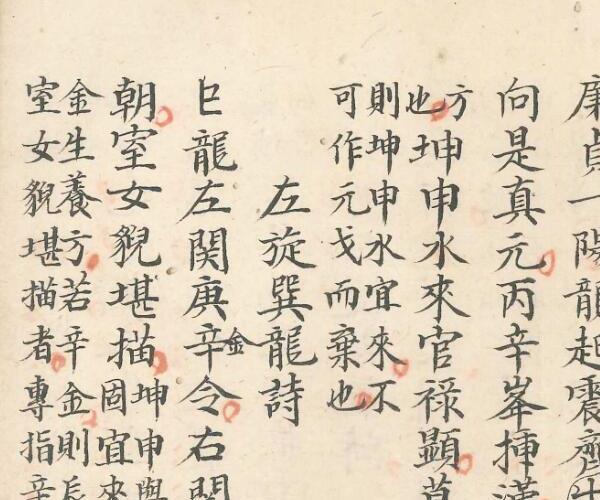 廉貞一陽龍起震齊
向是真元丙辛峯揷漢
方
也坤申水來官祿顯莫
則坤申水宜來不
可作元戈而棄也
左旋巽龍詩
巳龍左関庚辛金令右関
朝室女貎堪描坤申與
固宜來
金生養方若辛金則長
室女貎堪描者專指辛